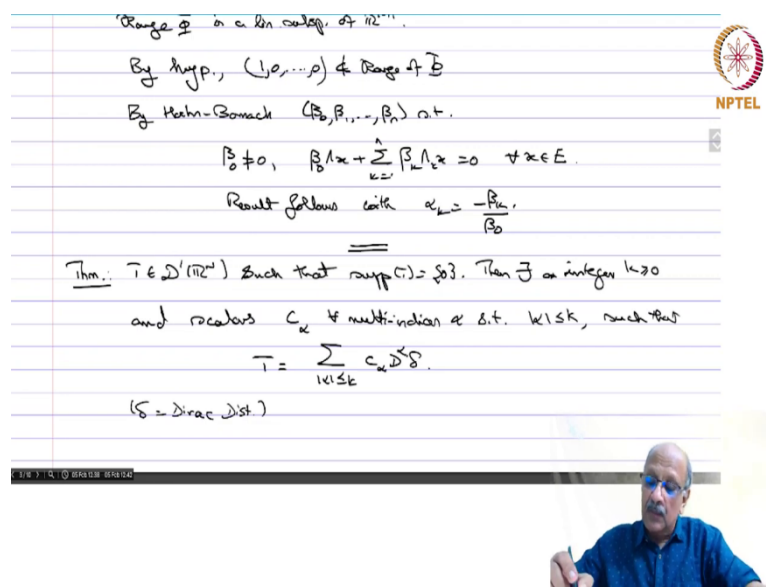 Range Φ is a lin subsp. of ℝⁿ⁺¹.
By hyp., (1,0,...,0) ∉ Range of Φ
NPTEL
By Hahn-Banach (β₀,β₁,...,βₙ) s.t.
β₀ ≠ 0, β₀Λx + Σₖ₌₁ⁿ βₖΛₖx = 0 ∀ x ∈ E.
Result follows with αₖ = -βₖ/β₀.
Thm.: T ∈ D'(ℝᴺ) such that supp(T) = {0}. Then ∃ an integer k ≥ 0
and scalars C_α ∀ multi-indices α s.t. |α| ≤ k, such that
T = Σ_{|α|≤k} C_α D^α δ.
(δ = Dirac Dist.)
05 Feb 12:38 05 Feb 12:42